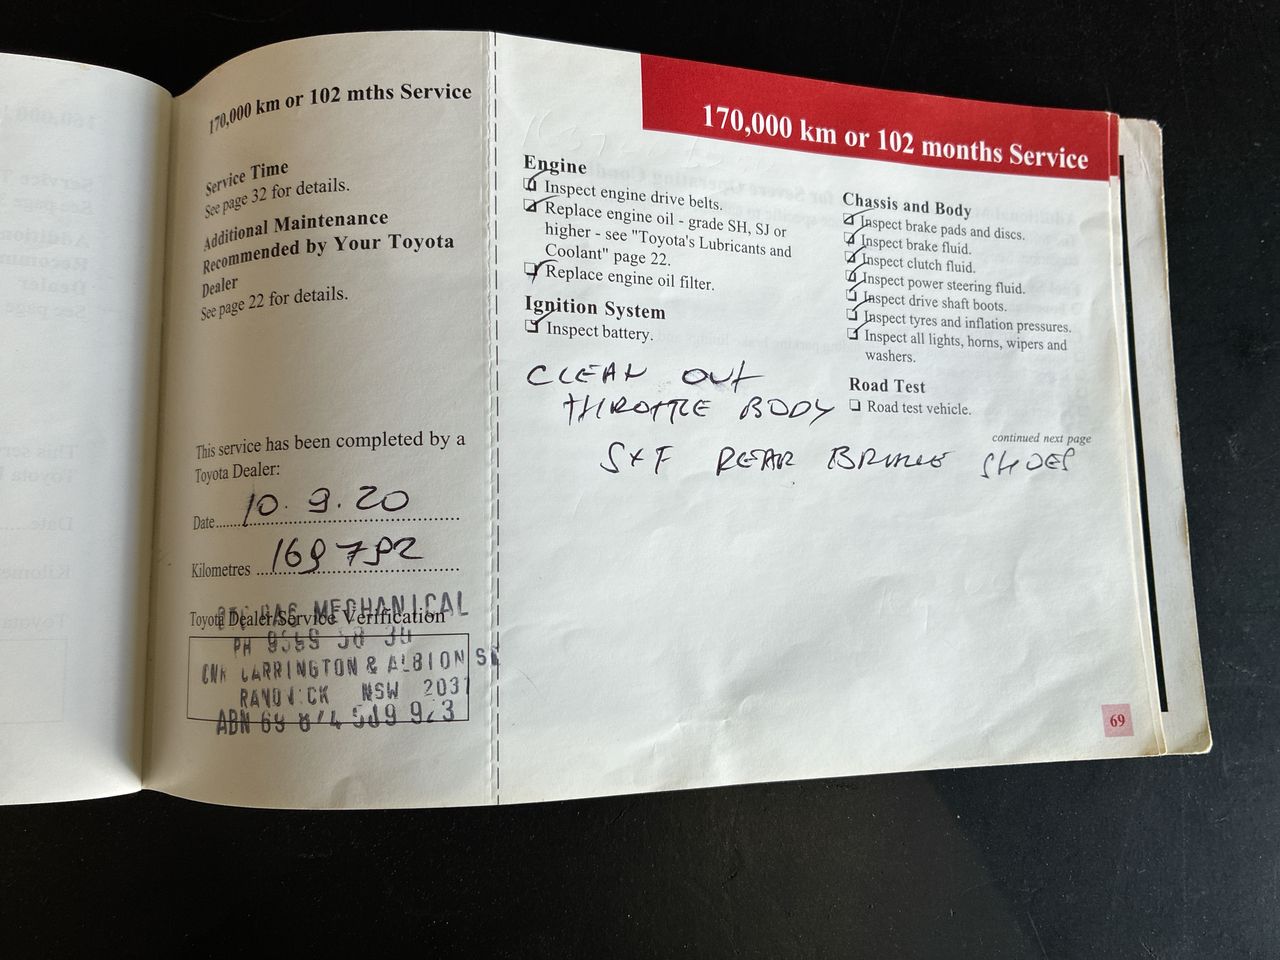 170,000 km or 102 mths Service
Service Time
See page 32 for details.
Additional Maintenance
Recommended by Your Toyota
Dealer
See page 22 for details.
This service has been completed by a
Toyota Dealer:
Date 10.9.20
Kilometres 169792
Toyota Dealer/Service Verification
MECHANICAL
PH
CNR CARRINGTON & ALBION ST
RANDWICK NSW 2031
ABN 69
170,000 km or 102 months Service
Engine
Inspect engine drive belts.
Replace engine oil - grade SH, SJ or
higher - see "Toyota's Lubricants and
Coolant" page 22.
Replace engine oil filter.
Ignition System
Inspect battery.
CLEAN OUT
THROTTLE BODY
S+F REAR BRAKE SHOES
Chassis and Body
Inspect brake pads and discs.
Inspect brake fluid.
Inspect clutch fluid.
Inspect power steering fluid.
Inspect drive shaft boots.
Inspect tyres and inflation pressures.
Inspect all lights, horns, wipers and
washers.
Road Test
Road test vehicle.
continued next page
69